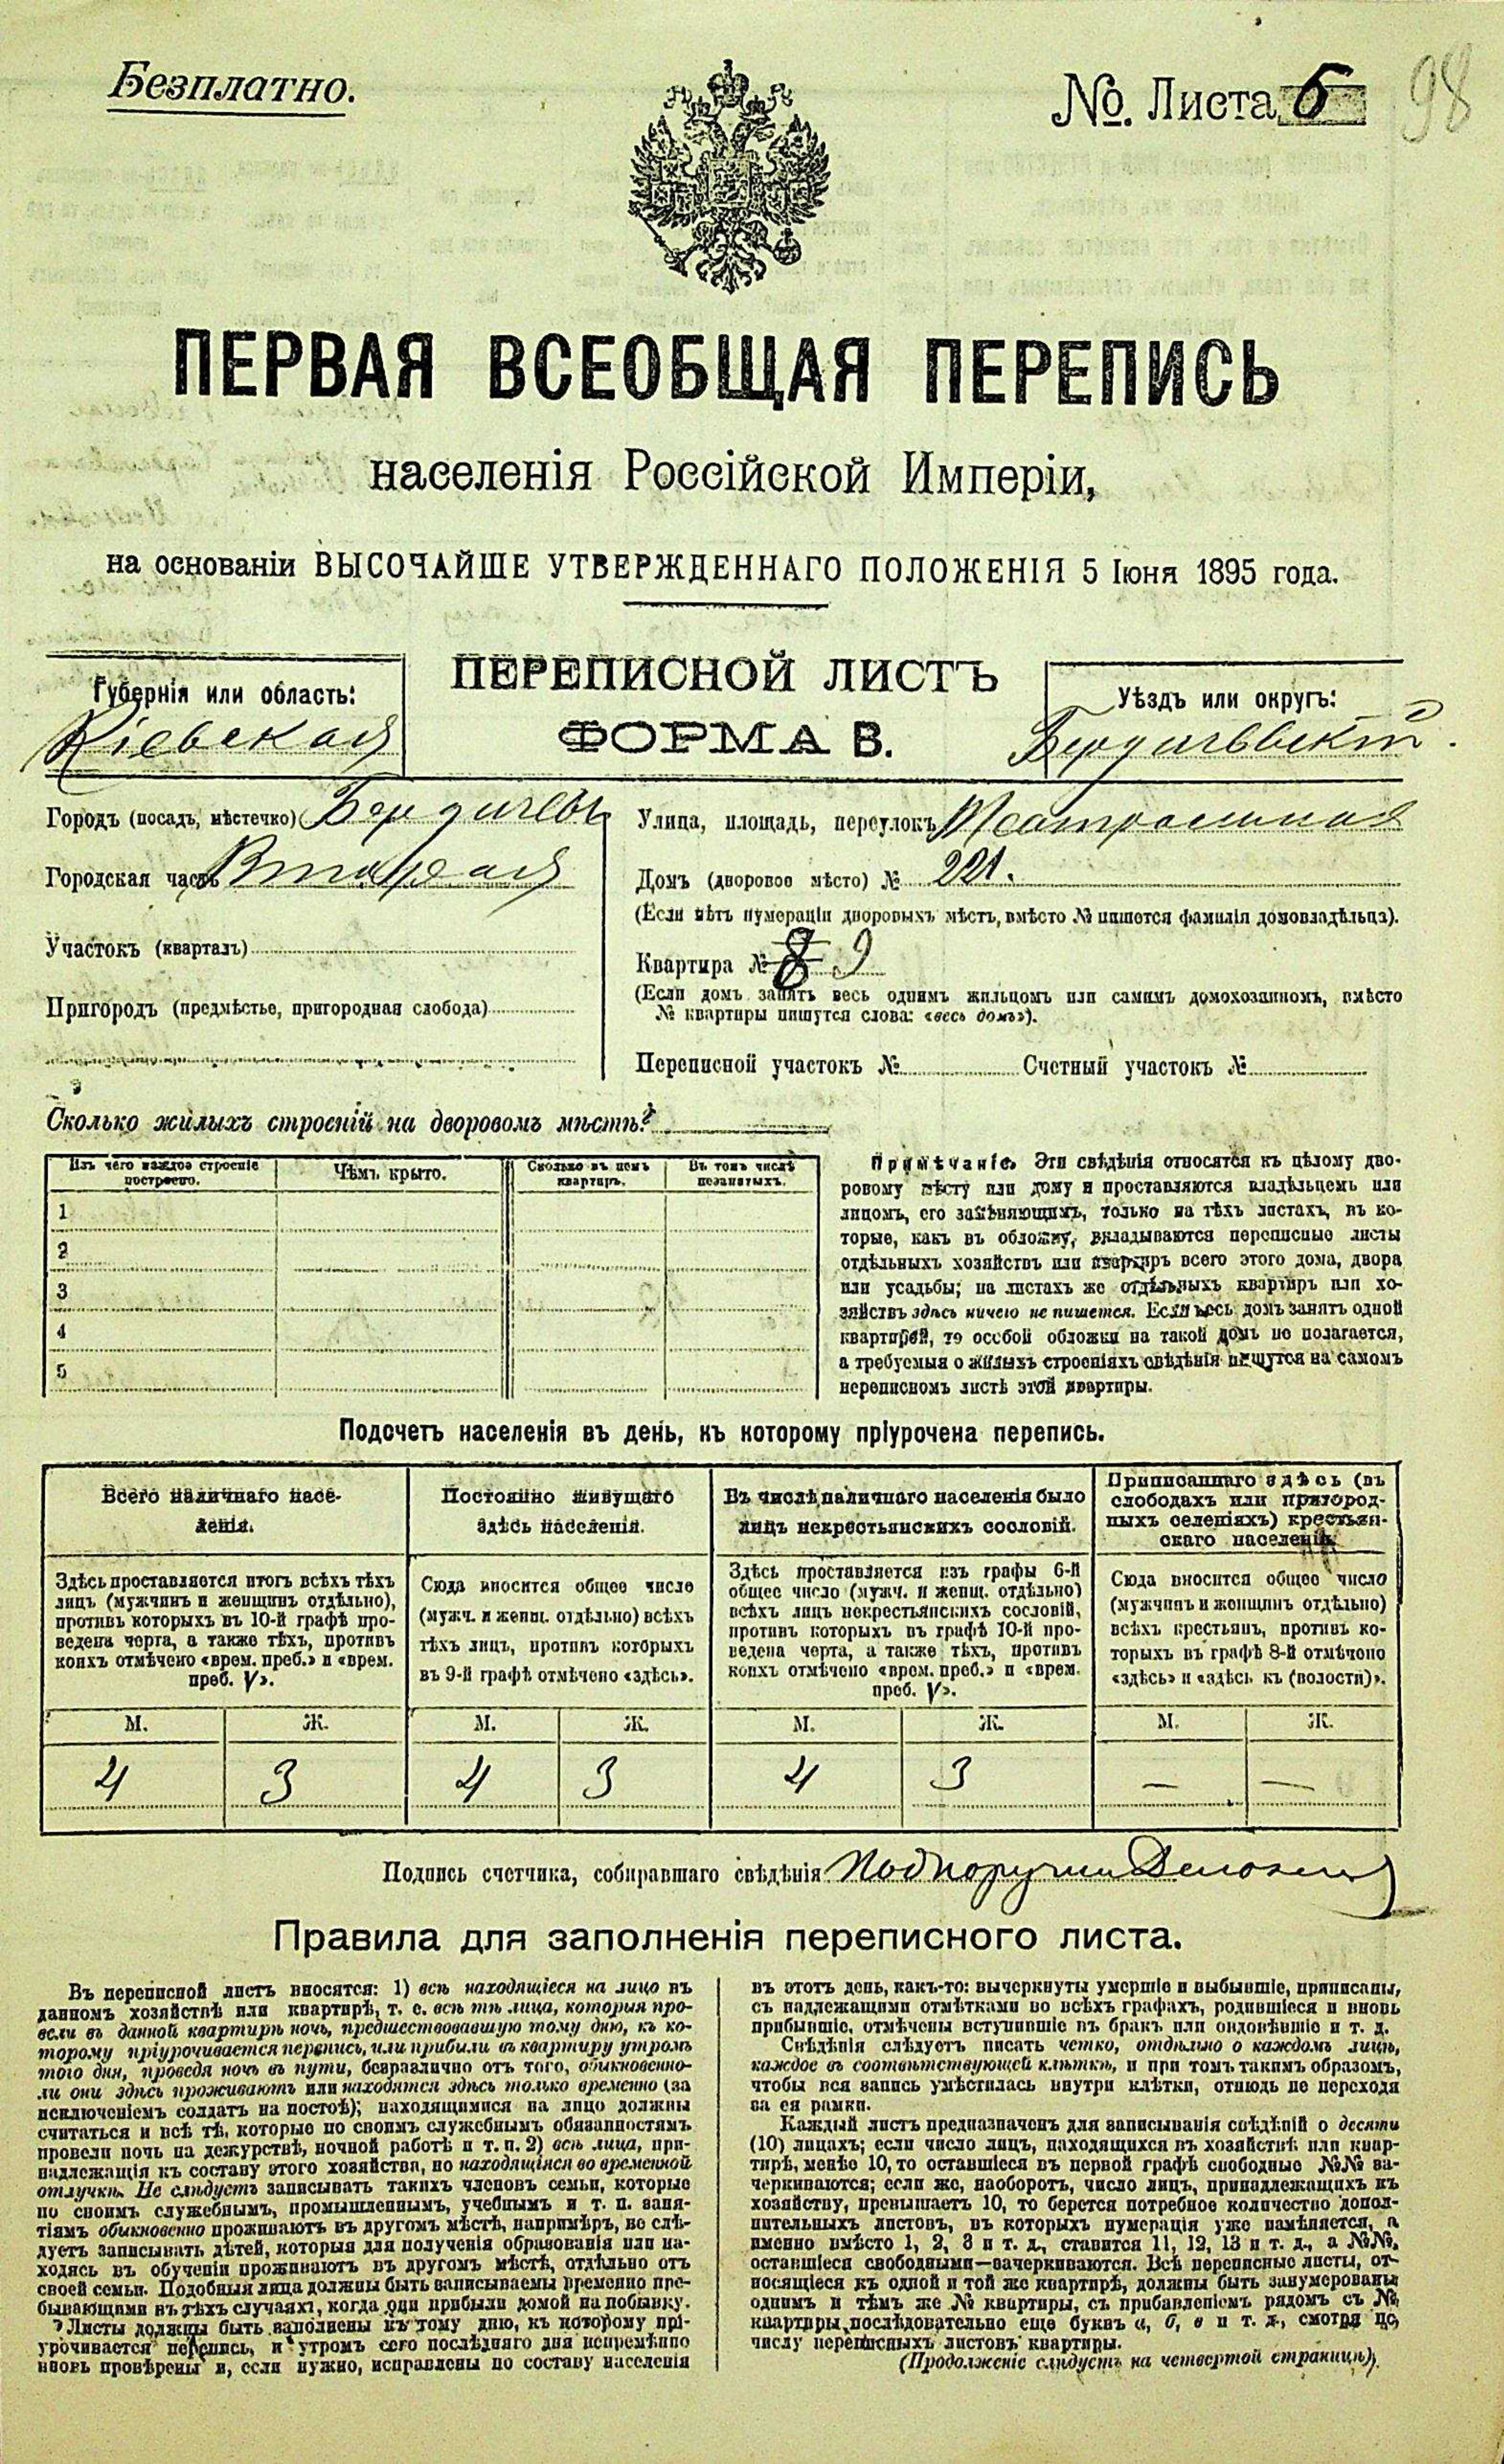 Безплатно.
№. Листа 6
98
ПЕРВАЯ ВСЕОБЩАЯ ПЕРЕПИСЬ
населенія Россійской Имперіи,
на основаніи ВЫСОЧАЙШЕ УТВЕРЖДЕННАГО ПОЛОЖЕНІЯ 5 Іюня 1895 года.
ПЕРЕПИСНОЙ ЛИСТЪ
ФОРМА В.
Губернія или область:
Кіевская
Уѣздъ или округъ:
Бердичевскій.
Городъ (посадъ, мѣстечко) Бердичевъ
Городская часть Вторая
Участокъ (кварталъ)
Пригородъ (предмѣстье, пригородная слобода)
Улица, площадь, переулокъ
Домъ (дворовое мѣсто) № 221.
(Если нѣтъ нумераціи дворовыхъ мѣстъ, вмѣсто № пишется фамилія домовладѣльца).
Квартира № 8 9
(Если домъ занятъ весь однимъ жильцомъ или самимъ домохозяиномъ, вмѣсто
№ квартиры пишутся слова: «весь домъ»).
Переписной участокъ № Счетный участокъ №
Сколько жилыхъ строеній на дворовомъ мѣстѣ?
Изъ чего каждое строеніе построено.
Чѣмъ крыто.
Сколько въ немъ квартиръ.
Въ томъ числѣ незанятыхъ.
1
2
3
4
5
Примѣчаніе. Эти свѣдѣнія относятся къ цѣлому дво-
ровому мѣсту или дому и проставляются владѣльцемъ или
лицомъ, его замѣняющимъ, только на тѣхъ листахъ, въ ко-
торые, какъ въ обложку, вкладываются переписные листы
отдѣльныхъ хозяйствъ или квартиръ всего этого дома, двора
или усадьбы; на листахъ же отдѣльныхъ квартиръ или хо-
зяйствъ здѣсь ничего не пишется. Если весь домъ занятъ одной
квартирой, то особой обложки на такой домъ не полагается,
а требуемыя о жилыхъ строеніяхъ свѣдѣнія пишутся на самомъ
переписномъ листѣ этой квартиры.
Подсчетъ населенія въ день, къ которому пріурочена перепись.
Всего наличнаго насе-
ленія.
Здѣсь проставляется итогъ всѣхъ тѣхъ
лицъ (мужчинъ и женщинъ отдѣльно),
противъ которыхъ въ 10-й графѣ про-
ведена черта, а также тѣхъ, противъ
коихъ отмѣчено «врем. преб.» и «врем.
преб. V».
М. Ж.
4 3
Постоянно живущаго
здѣсь населенія.
Сюда вносится общее число
(мужч. и женщ. отдѣльно) всѣхъ
тѣхъ лицъ, противъ которыхъ
въ 9-й графѣ отмѣчено «здѣсь».
М. Ж.
4 3
Въ числѣ наличнаго населенія было
лицъ некрестьянскихъ сословій.
Здѣсь проставляется изъ графы 6-й
общее число (мужч. и женщ. отдѣльно)
всѣхъ лицъ некрестьянскихъ сословій,
противъ которыхъ въ графѣ 10-й про-
ведена черта, а также тѣхъ, противъ
коихъ отмѣчено «врем. преб.» и «врем.
преб. V».
М. Ж.
4 3
Приписаннаго здѣсь (въ
слободахъ или пригород-
ныхъ селеніяхъ) крестьян-
скаго населенія.
Сюда вносится общее число
(мужчинъ и женщинъ отдѣльно)
всѣхъ крестьянъ, противъ ко-
торыхъ въ графѣ 8-й отмѣчено
«здѣсь» и «здѣсь къ (волости)».
М. Ж.
— —
Подпись счетчика, собиравшаго свѣдѣнія
Правила для заполненія переписного листа.
Въ переписной листъ вносятся: 1) всѣ находящіеся на лицо въ
данномъ хозяйствѣ или квартирѣ, т. е. всѣ тѣ лица, которыя про-
вели въ данной квартирѣ ночь, предшествовавшую тому дню, къ ко-
торому пріурочивается перепись, или прибыли въ квартиру утромъ
того дня, проведя ночь въ пути, безразлично отъ того, обыкновенно-
ли они здѣсь проживаютъ или находятся здѣсь только временно (за
исключеніемъ солдатъ на постоѣ); находящимися на лицо должны
считаться и всѣ тѣ, которые по своимъ служебнымъ обязанностямъ
провели ночь на дежурствѣ, ночной работѣ и т. п. 2) всѣ лица, при-
надлежащія къ составу этого хозяйства, но находящіяся во временной
отлучкѣ. Не слѣдуетъ записывать такихъ членовъ семьи, которые
по своимъ служебнымъ, промышленнымъ, учебнымъ и т. п. заня-
тіямъ обыкновенно проживаютъ въ другомъ мѣстѣ, напримѣръ, не слѣ-
дуетъ записывать дѣтей, которыя для полученія образованія или на-
ходясь въ обученіи проживаютъ въ другомъ мѣстѣ, отдѣльно отъ
своей семьи. Подобныя лица должны быть записываемы временно пре-
бывающими въ тѣхъ случаяхъ, когда они прибыли домой на побывку.
Листы должны быть заполнены къ тому дню, къ которому прі-
урочивается перепись, и утромъ сего послѣдняго дня непремѣнно
вновь провѣрены и, если нужно, исправлены по составу населенія
въ этотъ день, какъ-то: вычеркнуты умершіе и выбывшіе, приписаны,
съ надлежащими отмѣтками во всѣхъ графахъ, родившіеся и вновь
прибывшіе, отмѣчены вступившіе въ бракъ или овдовѣвшіе и т. д.
Свѣдѣнія слѣдуетъ писать четко, отдѣльно о каждомъ лицѣ,
каждое въ соотвѣтствующей клѣткѣ, и при томъ такимъ образомъ,
чтобы вся запись умѣстилась внутри клѣтки, отнюдь не переходя
за ея рамки.
Каждый листъ предназначенъ для записыванія свѣдѣній о десяти
(10) лицахъ; если число лицъ, находящихся въ хозяйствѣ или квар-
тирѣ, менѣе 10, то оставшіеся въ первой графѣ свободные №№ за-
черкиваются; если же, наоборотъ, число лицъ, принадлежащихъ къ
хозяйству, превышаетъ 10, то берется потребное количество допол-
нительныхъ листовъ, въ которыхъ нумерація уже измѣняется, а
именно вмѣсто 1, 2, 3 и т. д., ставится 11, 12, 13 и т. д., а №№,
оставшіеся свободными—зачеркиваются. Всѣ переписные листы, от-
носящіеся къ одной и той же квартирѣ, должны быть занумерованы
однимъ и тѣмъ же № квартиры, съ прибавленіемъ рядомъ съ №
квартиры, послѣдовательно еще буквъ а, б, в и т. д., смотря по
числу переписныхъ листовъ квартиры.
(Продолженіе слѣдуетъ на четвертой страницѣ).